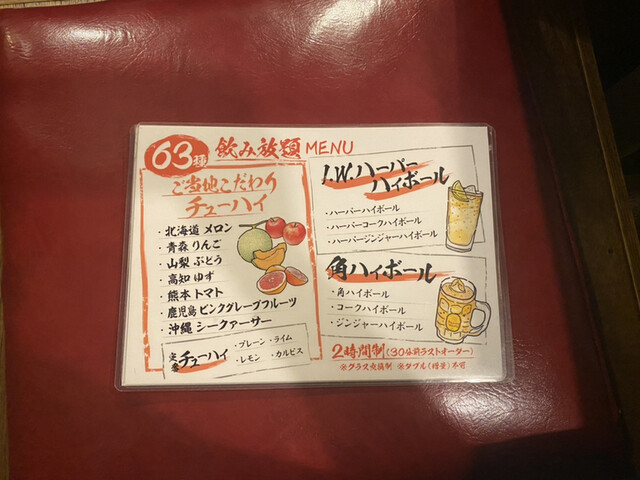 63種 飲み放題 MENU
ご当地こだわり
チューハイ
・北海道 メロン
・青森 りんご
・山梨 ぶどう
・高知 ゆず
・熊本 トマト
・鹿児島 ピンクグレープフルーツ
・沖縄 シークァーサー
定番 チューハイ
・プレーン ・ライム
・レモン ・カルピス
I.W.ハーパー
ハイボール
・ハーパーハイボール
・ハーパーコークハイボール
・ハーパージンジャーハイボール
角ハイボール
・角ハイボール
・コークハイボール
・ジンジャーハイボール
2時間制(30分前ラストオーダー)
※グラス交換制 ※ダブル(増量)不可